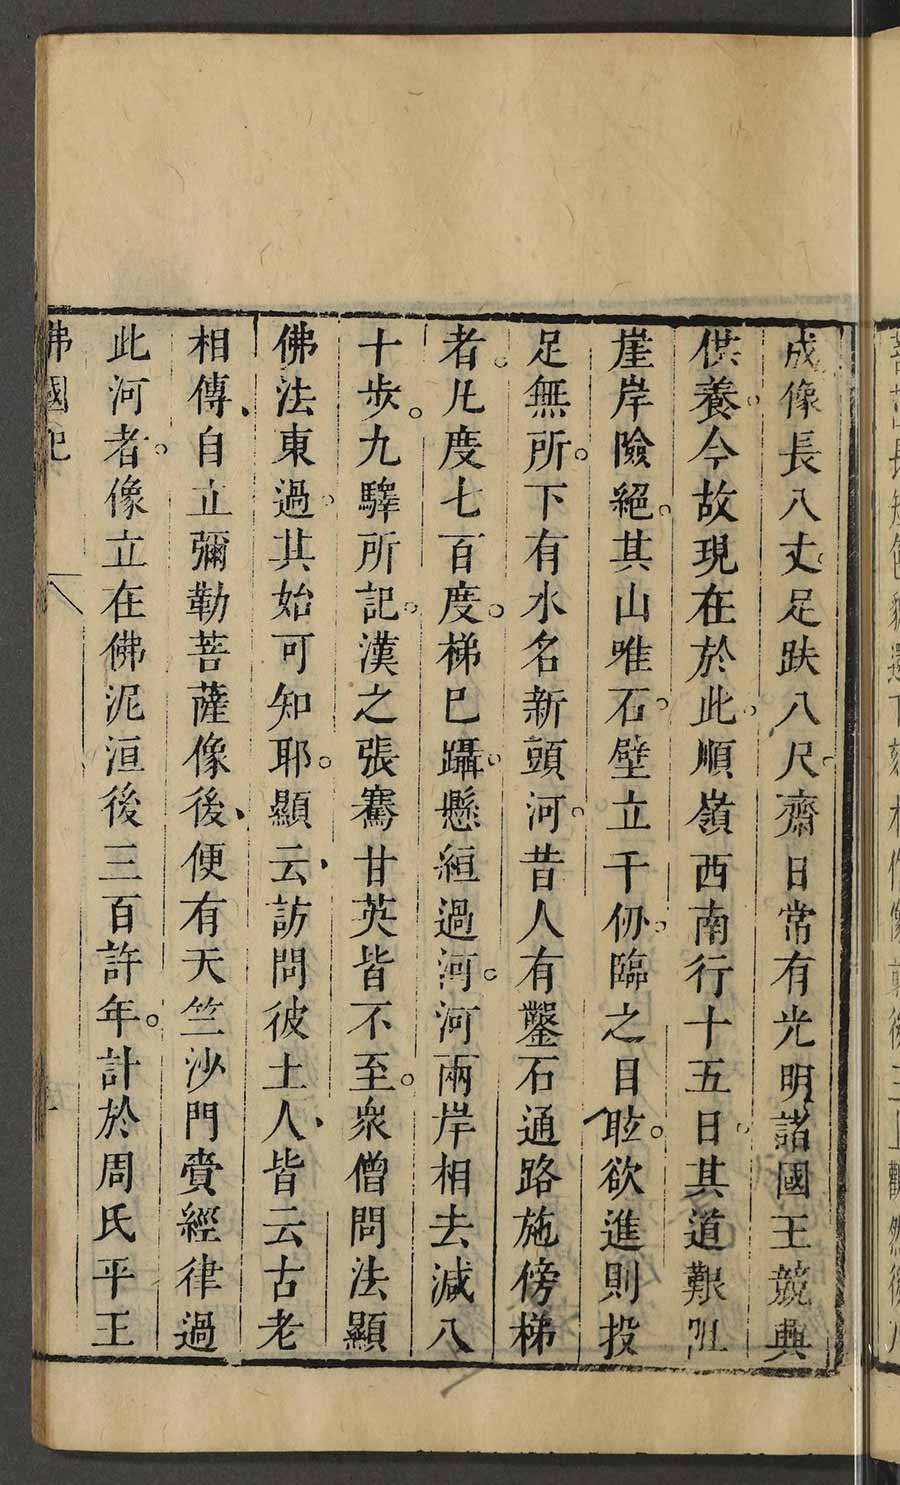 成像長八丈足趺八尺齋日常有光明諸國王競興
供養今故現在於此順嶺西南行十五日其道艱岨
崖岸險絕其山唯石壁立千仞臨之目眩欲進則投
足無所下有水名新頭河昔人有鑿石通路施傍梯
者凡度七百度梯已躡懸絙過河河兩岸相去減八
十步九驛所記漢之張騫甘英皆不至衆僧問法顯
佛法東過其始可知耶顯云訪問彼土人皆云古老
相傳自立彌勒菩薩像後便有天竺沙門賫經律過
此河者像立在佛泥洹後三百許年計於周氏平王
佛國記